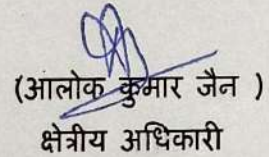 (आलोक कुमार जैन )
क्षेत्रीय अधिकारी